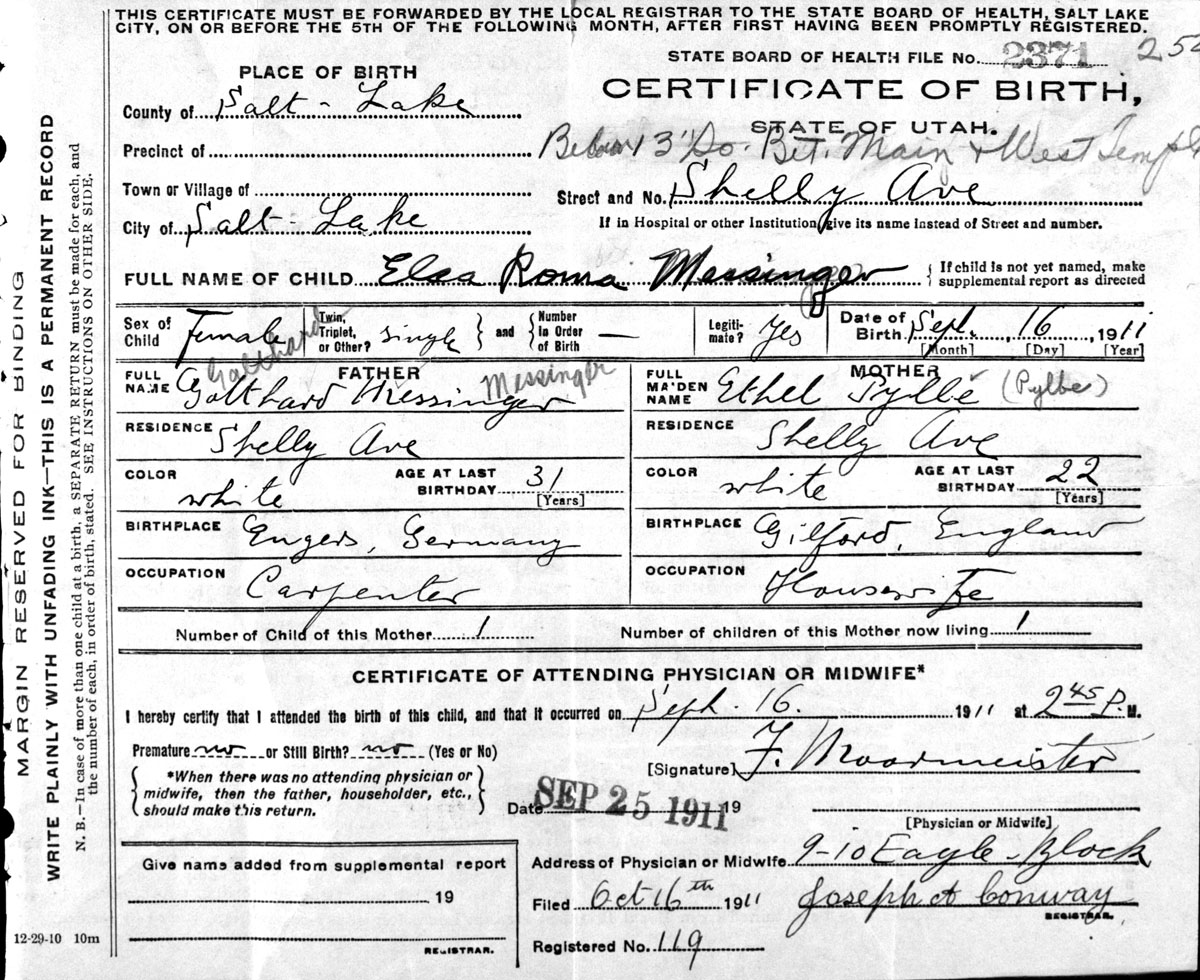 THIS CERTIFICATE MUST BE FORWARDED BY THE LOCAL REGISTRAR TO THE STATE BOARD OF HEALTH, SALT LAKE
CITY, ON OR BEFORE THE 5TH OF THE FOLLOWING MONTH, AFTER FIRST HAVING BEEN PROMPTLY REGISTERED.
STATE BOARD OF HEALTH FILE NO. 2371
PLACE OF BIRTH
CERTIFICATE OF BIRTH,
County of Salt-Lake
STATE OF UTAH.
Precinct of
Below 13 So. Bet. Main & West Temple
Town or Village of
Street and No. Shelly Ave
City of Salt-Lake
If in Hospital or other Institution, give its name instead of Street and number.
FULL NAME OF CHILD Elsa Roma Messinger
{ If child is not yet named, make
supplemental report as directed
Sex of Child Female
Twin, Triplet, or Other? single } and { Number in Order of Birth —
Legitimate? Yes
Date of Birth Sept. 16, 1911
[Month] [Day] [Year]
FATHER
Gotthard Messinger
FULL NAME Gotthard Messinger
RESIDENCE Shelly Ave
COLOR white
AGE AT LAST BIRTHDAY 31 [Years]
BIRTHPLACE Engers, Germany
OCCUPATION Carpenter
MOTHER
FULL MAIDEN NAME Ethel Pylbe (Pylbe)
RESIDENCE Shelly Ave
COLOR white
AGE AT LAST BIRTHDAY 22 [Years]
BIRTHPLACE Gilford, England
OCCUPATION Housewife
Number of Child of this Mother 1
Number of children of this Mother now living 1
CERTIFICATE OF ATTENDING PHYSICIAN OR MIDWIFE*
I hereby certify that I attended the birth of this child, and that it occurred on Sept. 16. 1911 at 2 45 P. M.
Premature no or Still Birth? no (Yes or No)
[Signature] F. Moormeister
{ *When there was no attending physician or
midwife, then the father, householder, etc.,
should make this return. }
Date SEP 25 1911 19
[Physician or Midwife]
Give name added from supplemental report
19
REGISTRAR.
Address of Physician or Midwife 9-10 Eagle-Block
Filed Oct 16th 1911 Joseph A Conway
REGISTRAR.
Registered No. 119
12-29-10 10m
MARGIN RESERVED FOR BINDING
WRITE PLAINLY WITH UNFADING INK—THIS IS A PERMANENT RECORD
N. B.—In case of more than one child at a birth, a SEPARATE RETURN must be made for each, and
the number of each, in order of birth, stated. SEE INSTRUCTIONS ON OTHER SIDE.